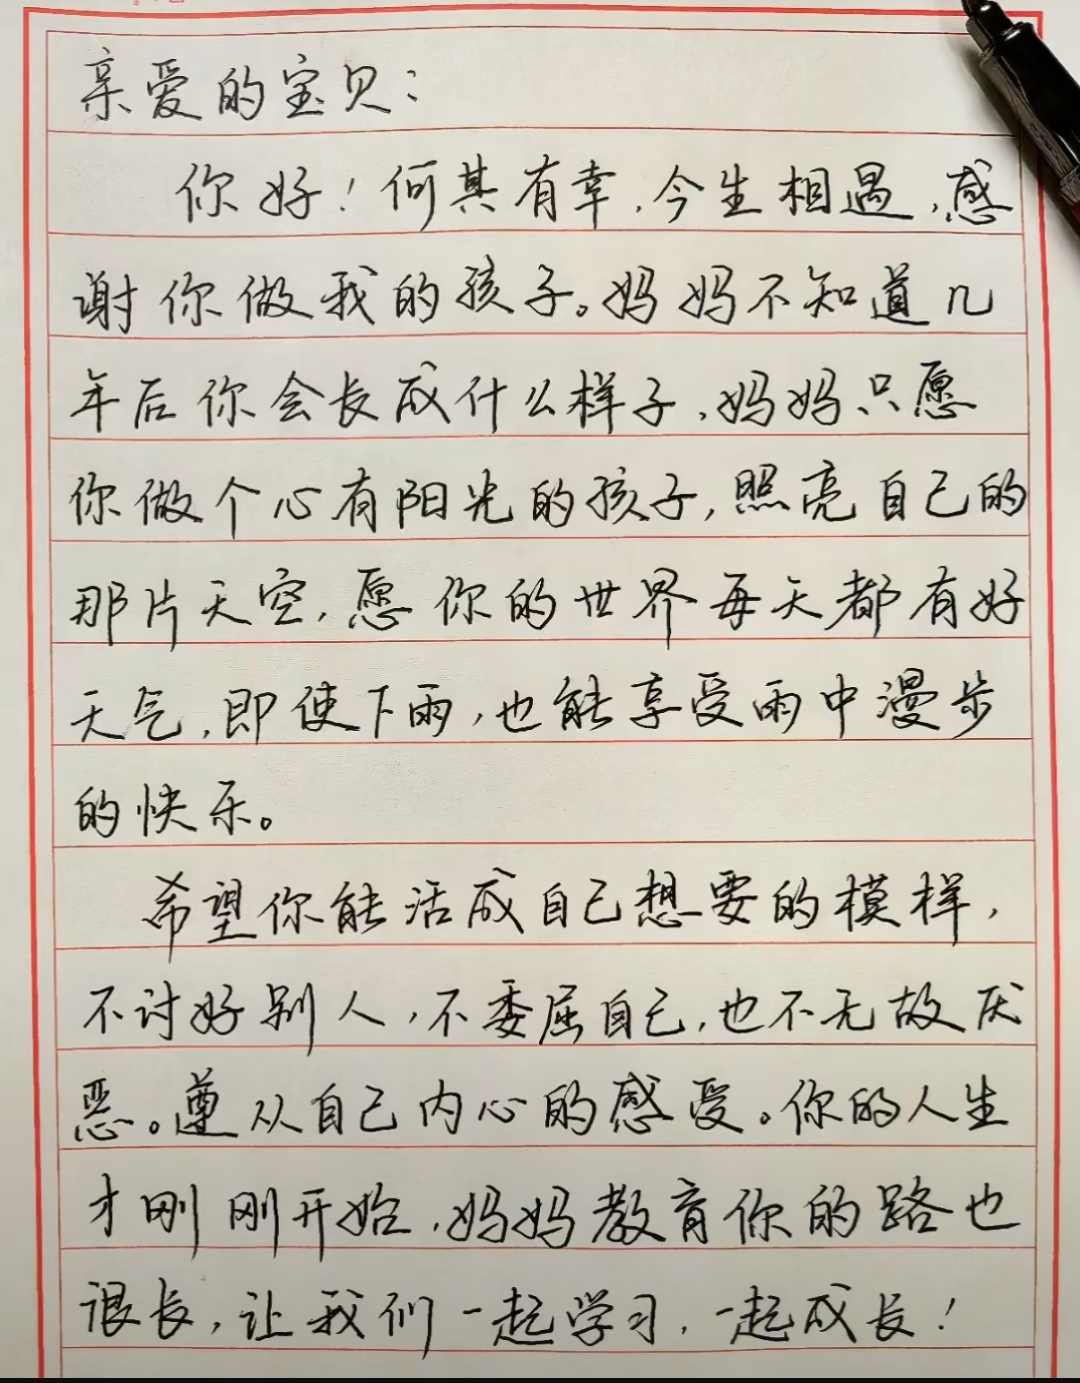 亲爱的宝贝：
你好！何其有幸，今生相遇，感
谢你做我的孩子。妈妈不知道几
年后你会长成什么样子，妈妈只愿
你做个心有阳光的孩子，照亮自己的
那片天空，愿你的世界每天都有好
天气，即使下雨，也能享受雨中漫步
的快乐。
希望你能活成自己想要的模样，
不讨好别人，不委屈自己，也不无故厌
恶。遵从自己内心的感受。你的人生
才刚刚开始，妈妈教育你的路也
很长，让我们一起学习，一起成长！